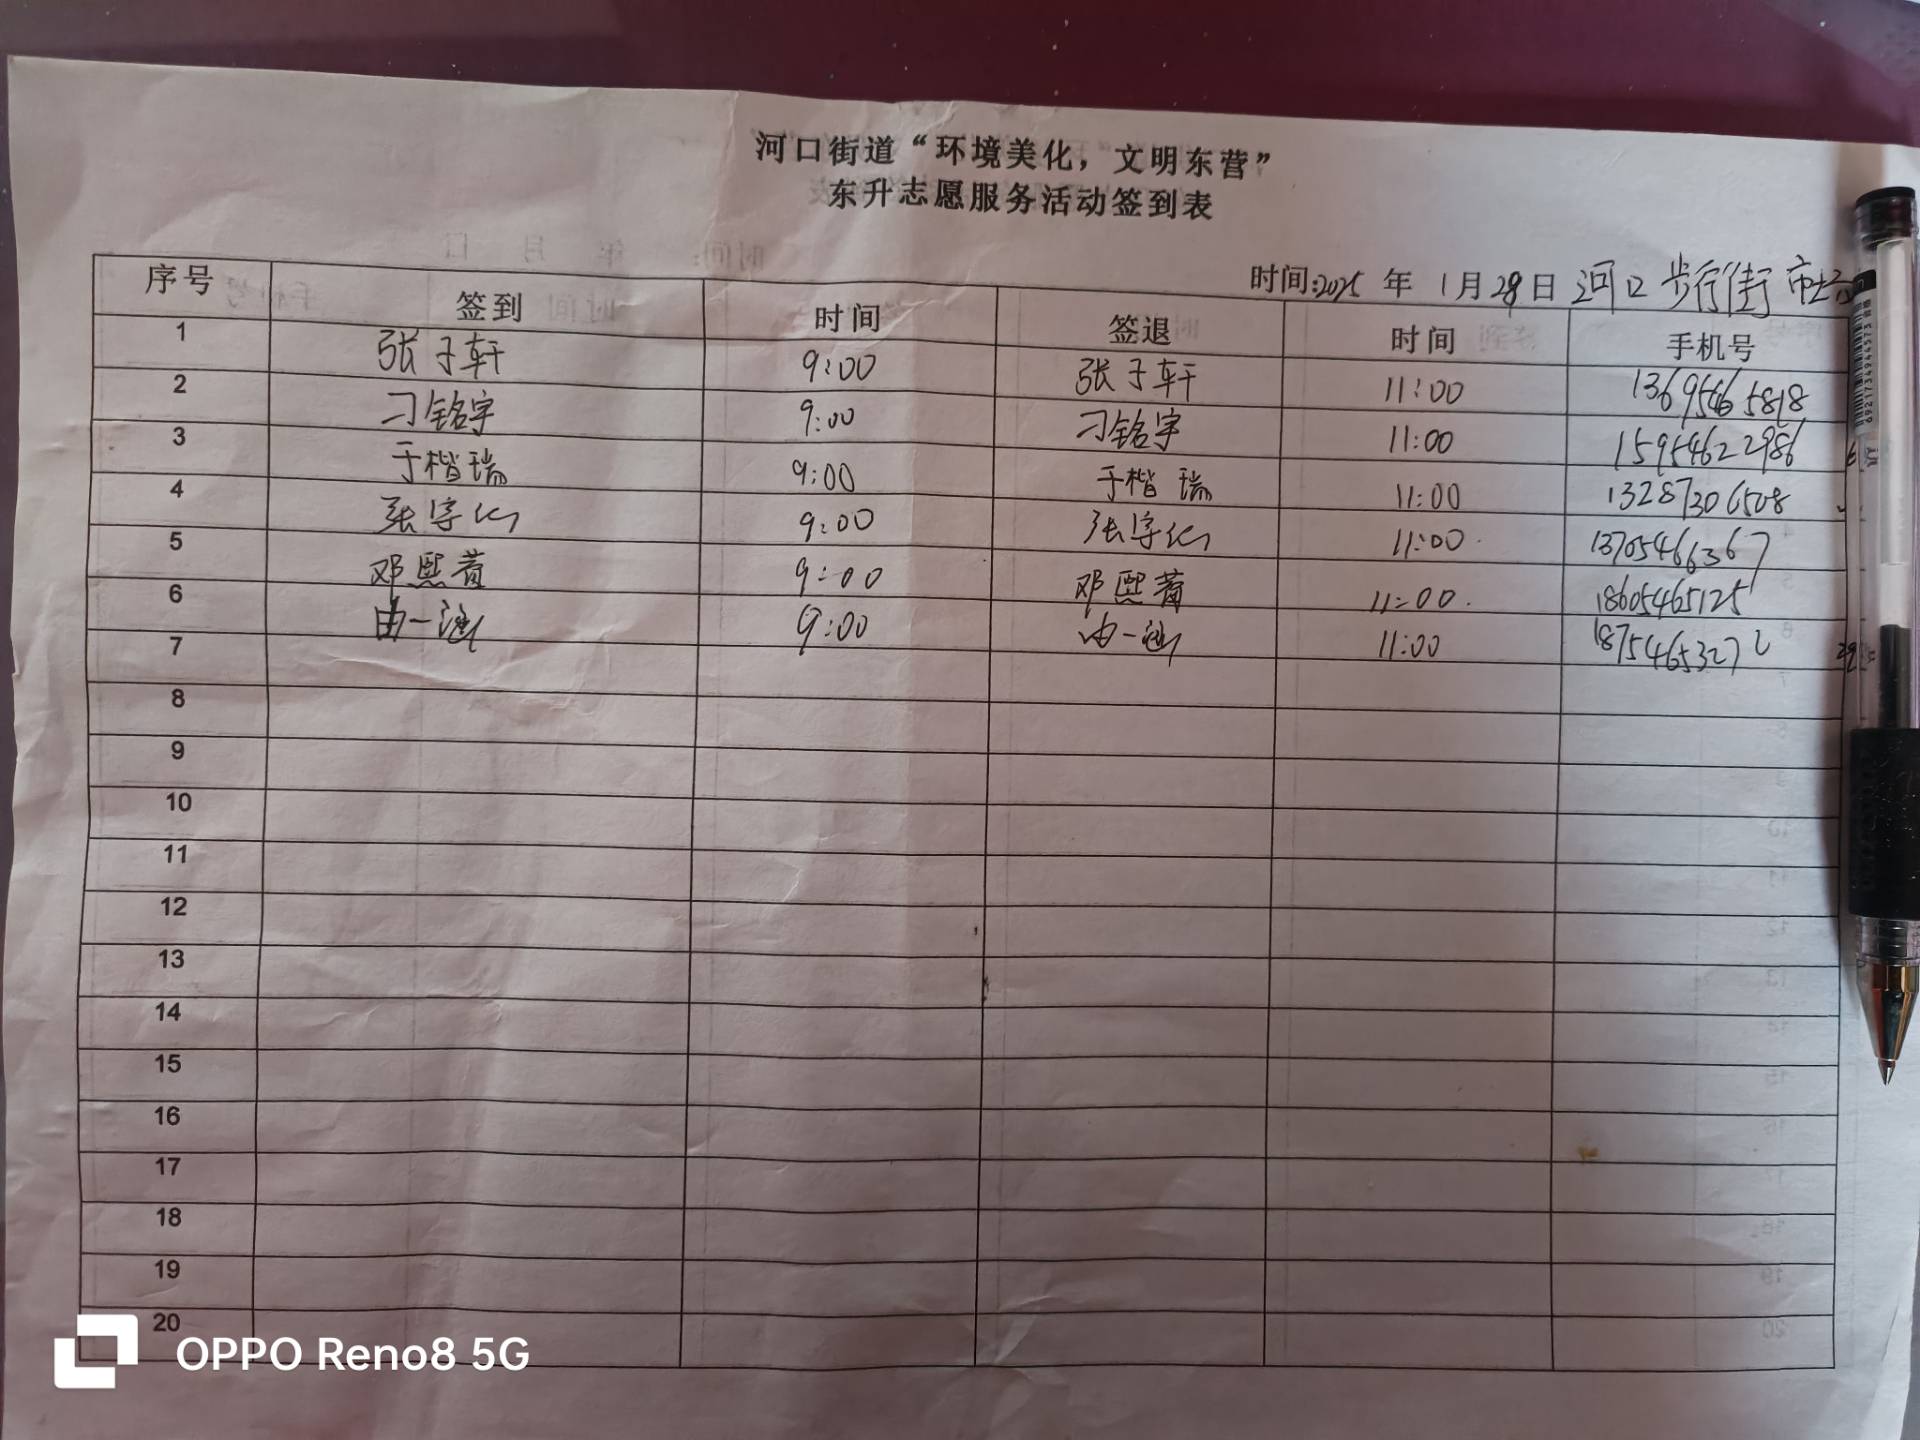 河口街道“环境美化，文明东营”
东升志愿服务活动签到表
时间:2025 年 1月28日 河口 步行街
序号 签到 时间 签退 时间 手机号
1 张子轩 9:00 张子轩 11:00 13695465818
2 刁铭宇 9:00 刁铭宇 11:00 15954622986
3 于楷瑞 9:00 于楷瑞 11:00 13287306508
4 9:00 11:00 13705466367
5 邓熙 9:00 邓熙 11:00 18605465125
6 由一涵 9:00 由一涵 11:00 18754653272
7
8
9
10
11
12
13
14
15
16
17
18
19
20
OPPO Reno8 5G